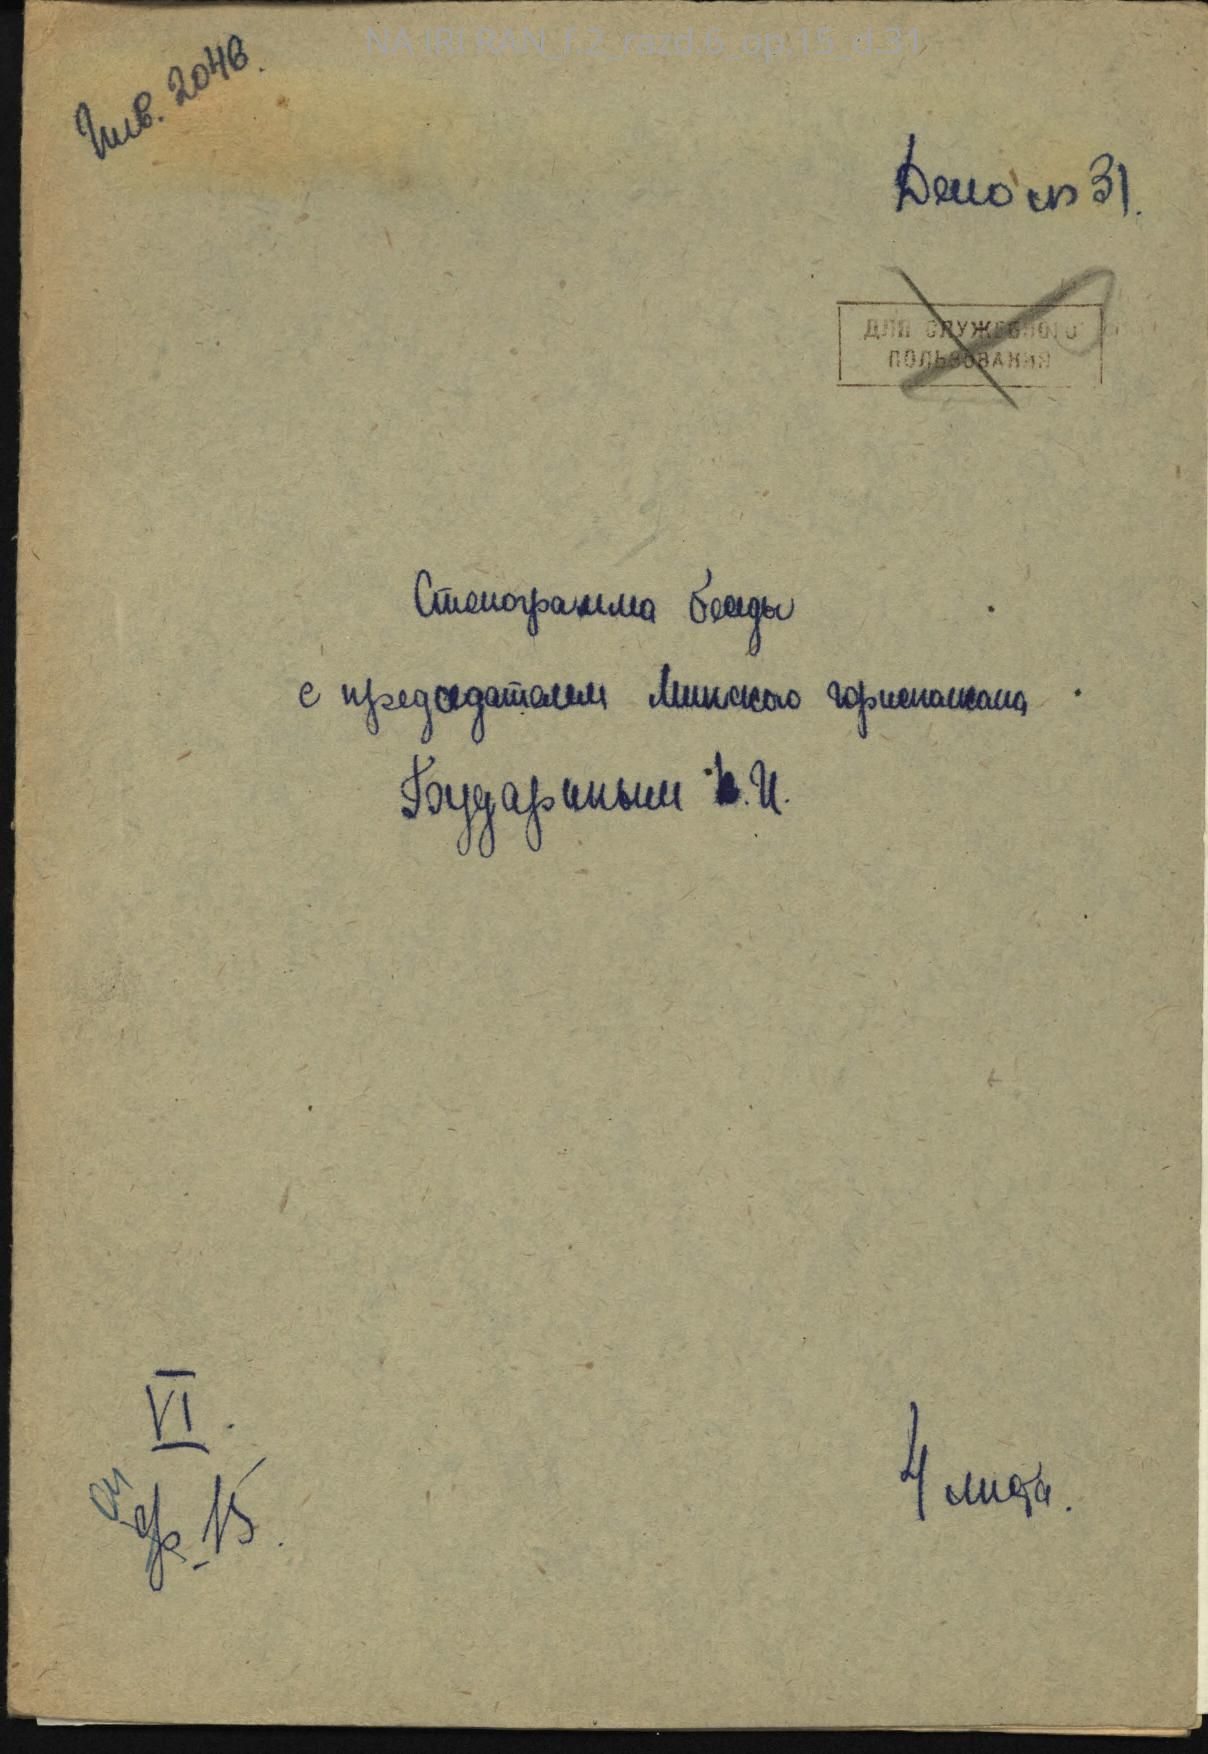 NA IRI RAN_f.2_razd.6_op.15_d.31
Инв. 2046.
Дело № 31.
ДЛЯ СЛУЖЕБНОГО
ПОЛЬЗОВАНИЯ
Стенограмма беседы
с председателем Минского горисполкома
Будариным К.И.
VI.
оп
15.
4 листа.